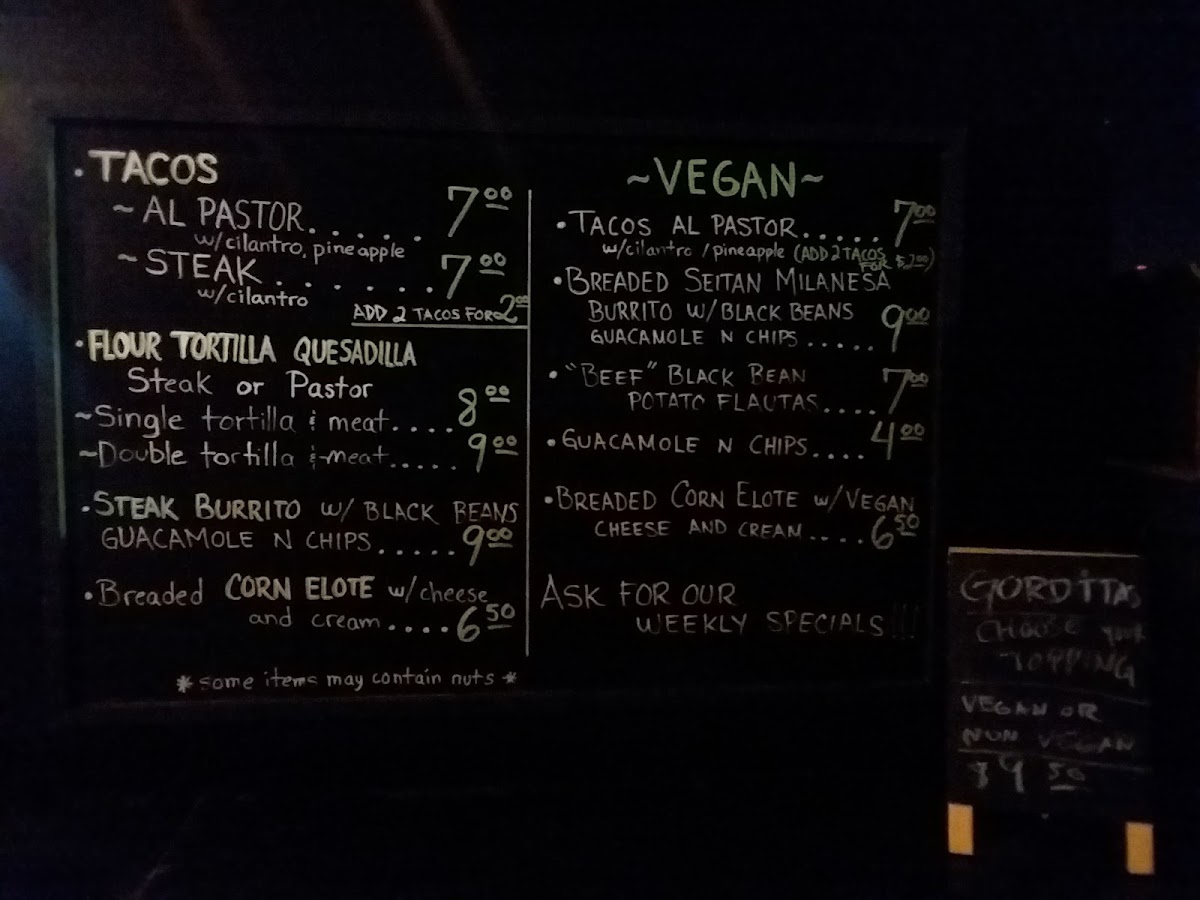 • TACOS
~ AL PASTOR...... 7⁰⁰
w/cilantro, pineapple
~ STEAK....... 7⁰⁰
w/cilantro
ADD 2 TACOS FOR 2⁰⁰
• FLOUR TORTILLA QUESADILLA
Steak or Pastor
~Single tortilla & meat.... 8⁰⁰
~Double tortilla & meat..... 9⁰⁰
• STEAK BURRITO w/ BLACK BEANS
GUACAMOLE N CHIPS..... 9⁰⁰
• Breaded CORN ELOTE w/cheese
and cream.... 6⁵⁰
* some items may contain nuts *
~VEGAN~
• TACOS AL PASTOR..... 7⁰⁰
w/cilantro/pineapple (ADD 2 TACOS
FOR $2.00)
• BREADED SEITAN MILANESA
BURRITO W/BLACK BEANS
GUACAMOLE N CHIPS..... 9⁰⁰
• "BEEF" BLACK BEAN
POTATO FLAUTAS.... 7⁰⁰
• GUACAMOLE N CHIPS.... 4⁰⁰
• BREADED CORN ELOTE w/VEGAN
CHEESE AND CREAM.... 6⁵⁰
ASK FOR OUR
WEEKLY SPECIALS!!!
GORDITAS
CHOOSE your
TOPPING
VEGAN OR
NON VEGAN
$9 50